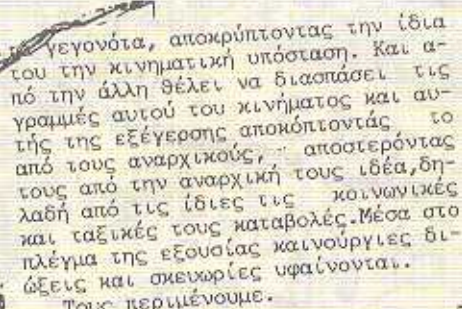 γεγονότα, αποκρύπτοντας την ίδια
του την κινηματική υπόσταση. Και α-
πό την άλλη θέλει να διασπάσει τις
γραμμές αυτού του κινήματος και αυ-
τής της εξέγερσης αποκόπτοντάς το
από τους αναρχικούς, αποστερόντας
τους από την αναρχική τους ιδέα,δη-
λαδή από τις ίδιες τις κοινωνικές
και ταξικές τους καταβολές.Μέσα στο
πλέγμα της εξουσίας καινούργιες δι-
ώξεις και σκευωρίες υφαίνονται.
Τους περιμένουμε.